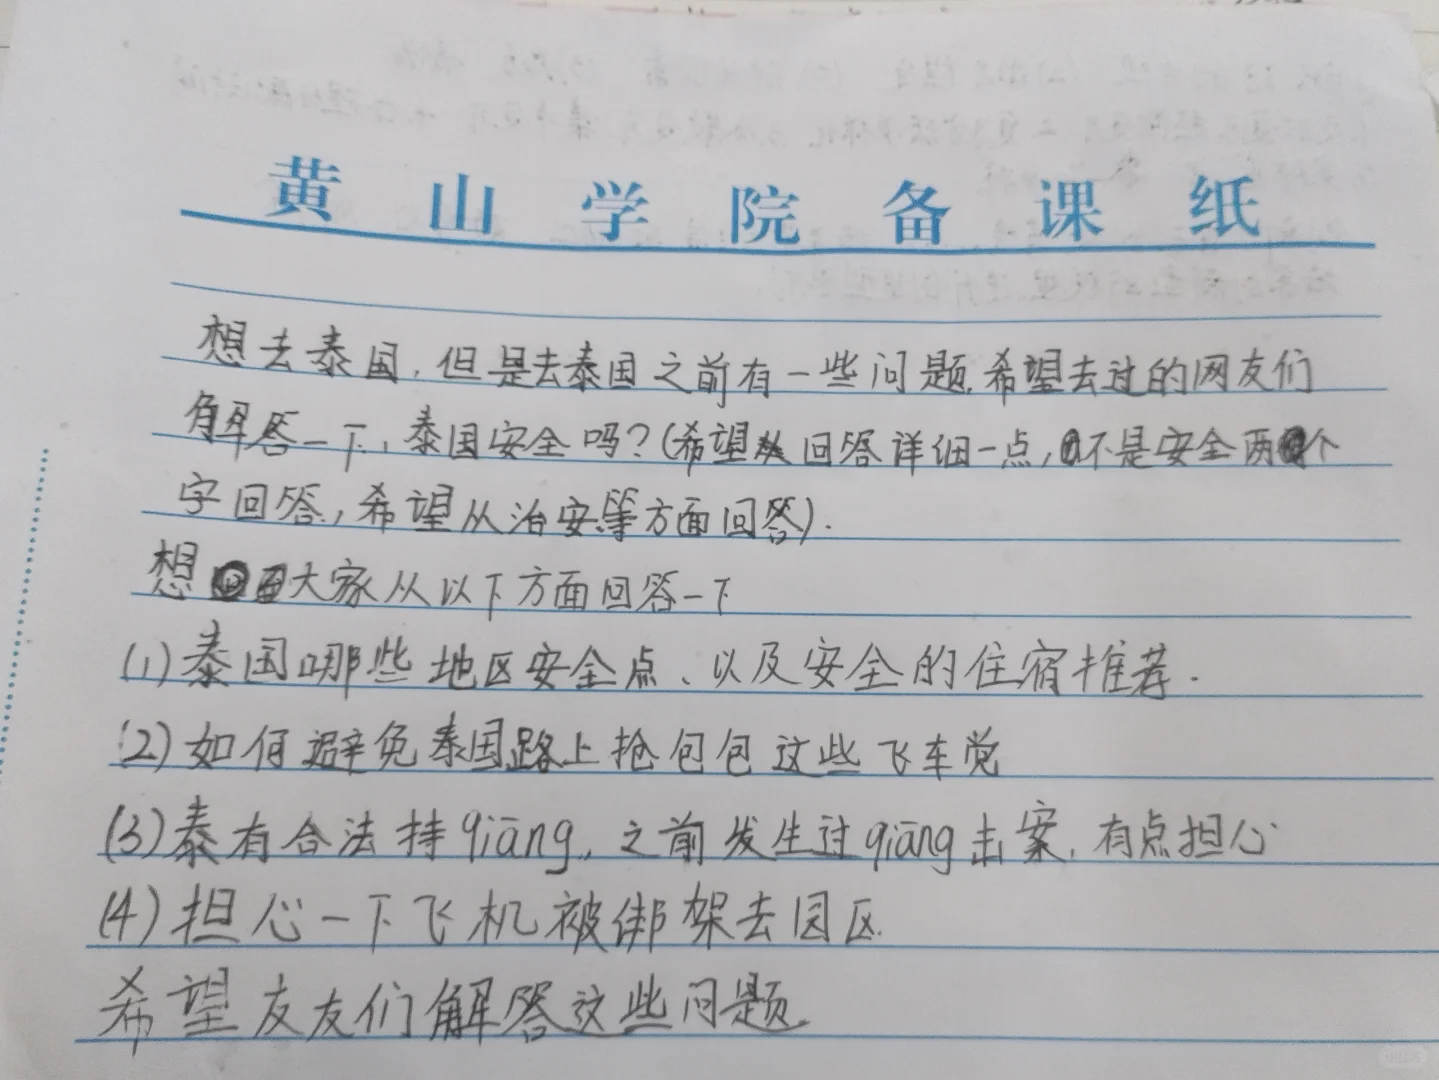 黄山学院备课纸
想去泰国，但是去泰国之前有一些问题，希望去过的网友们
解答一下，泰国安全吗？（希望从回答详细一点，不是安全两个
字回答，希望从治安等方面回答）.
想大家从以下方面回答一下
(1)泰国哪些地区安全点、以及安全的住宿推荐.
(2)如何避免泰国路上抢包包这些飞车党
(3)泰有合法持qiāng，之前发生过qiāng击案，有点担心
(4)担心一下飞机被绑架去园区.
希望友友们解答这些问题.